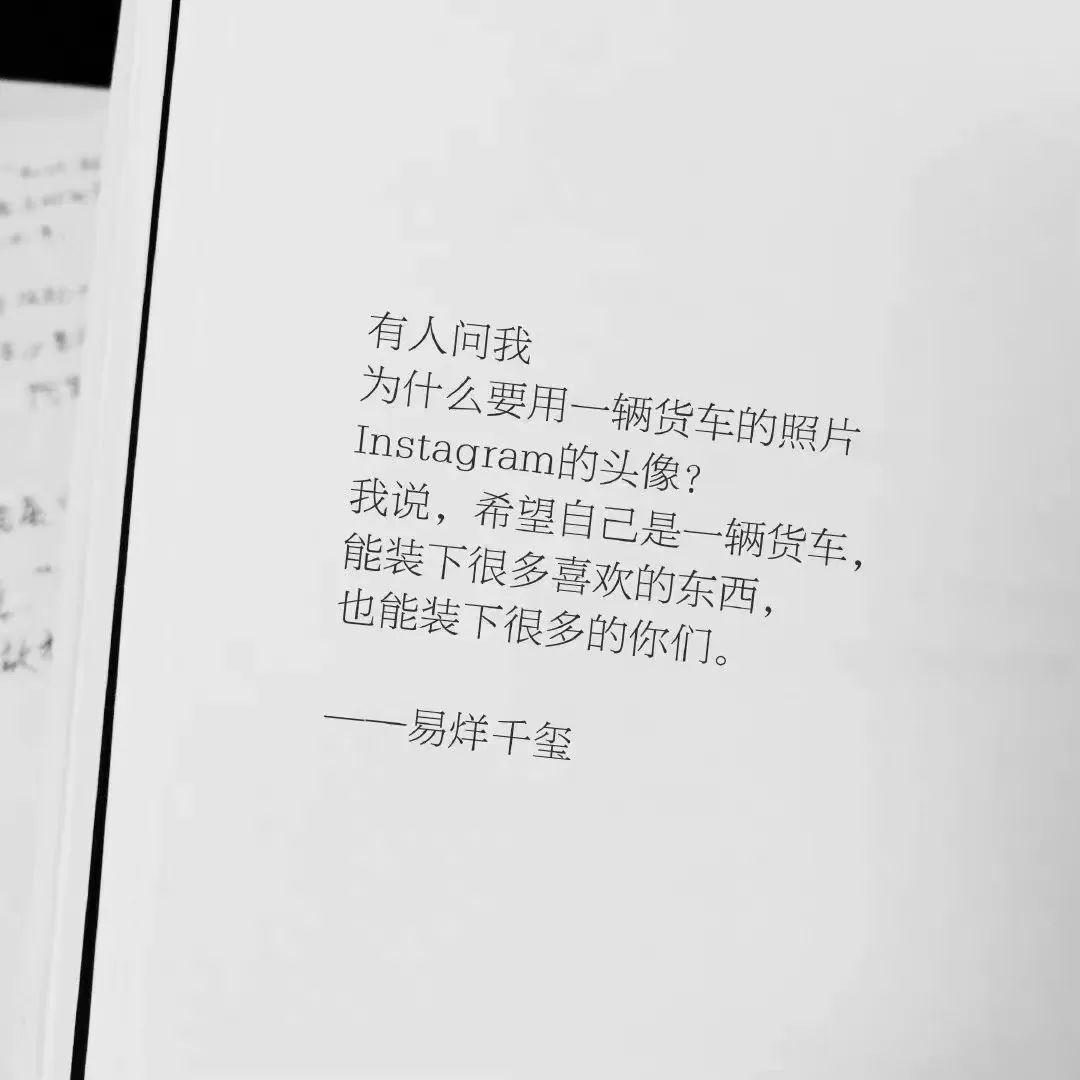 有人问我
为什么要用一辆货车的照片
Instagram的头像?
我说，希望自己是一辆货车，
能装下很多喜欢的东西，
也能装下很多的你们。
——易烊千玺